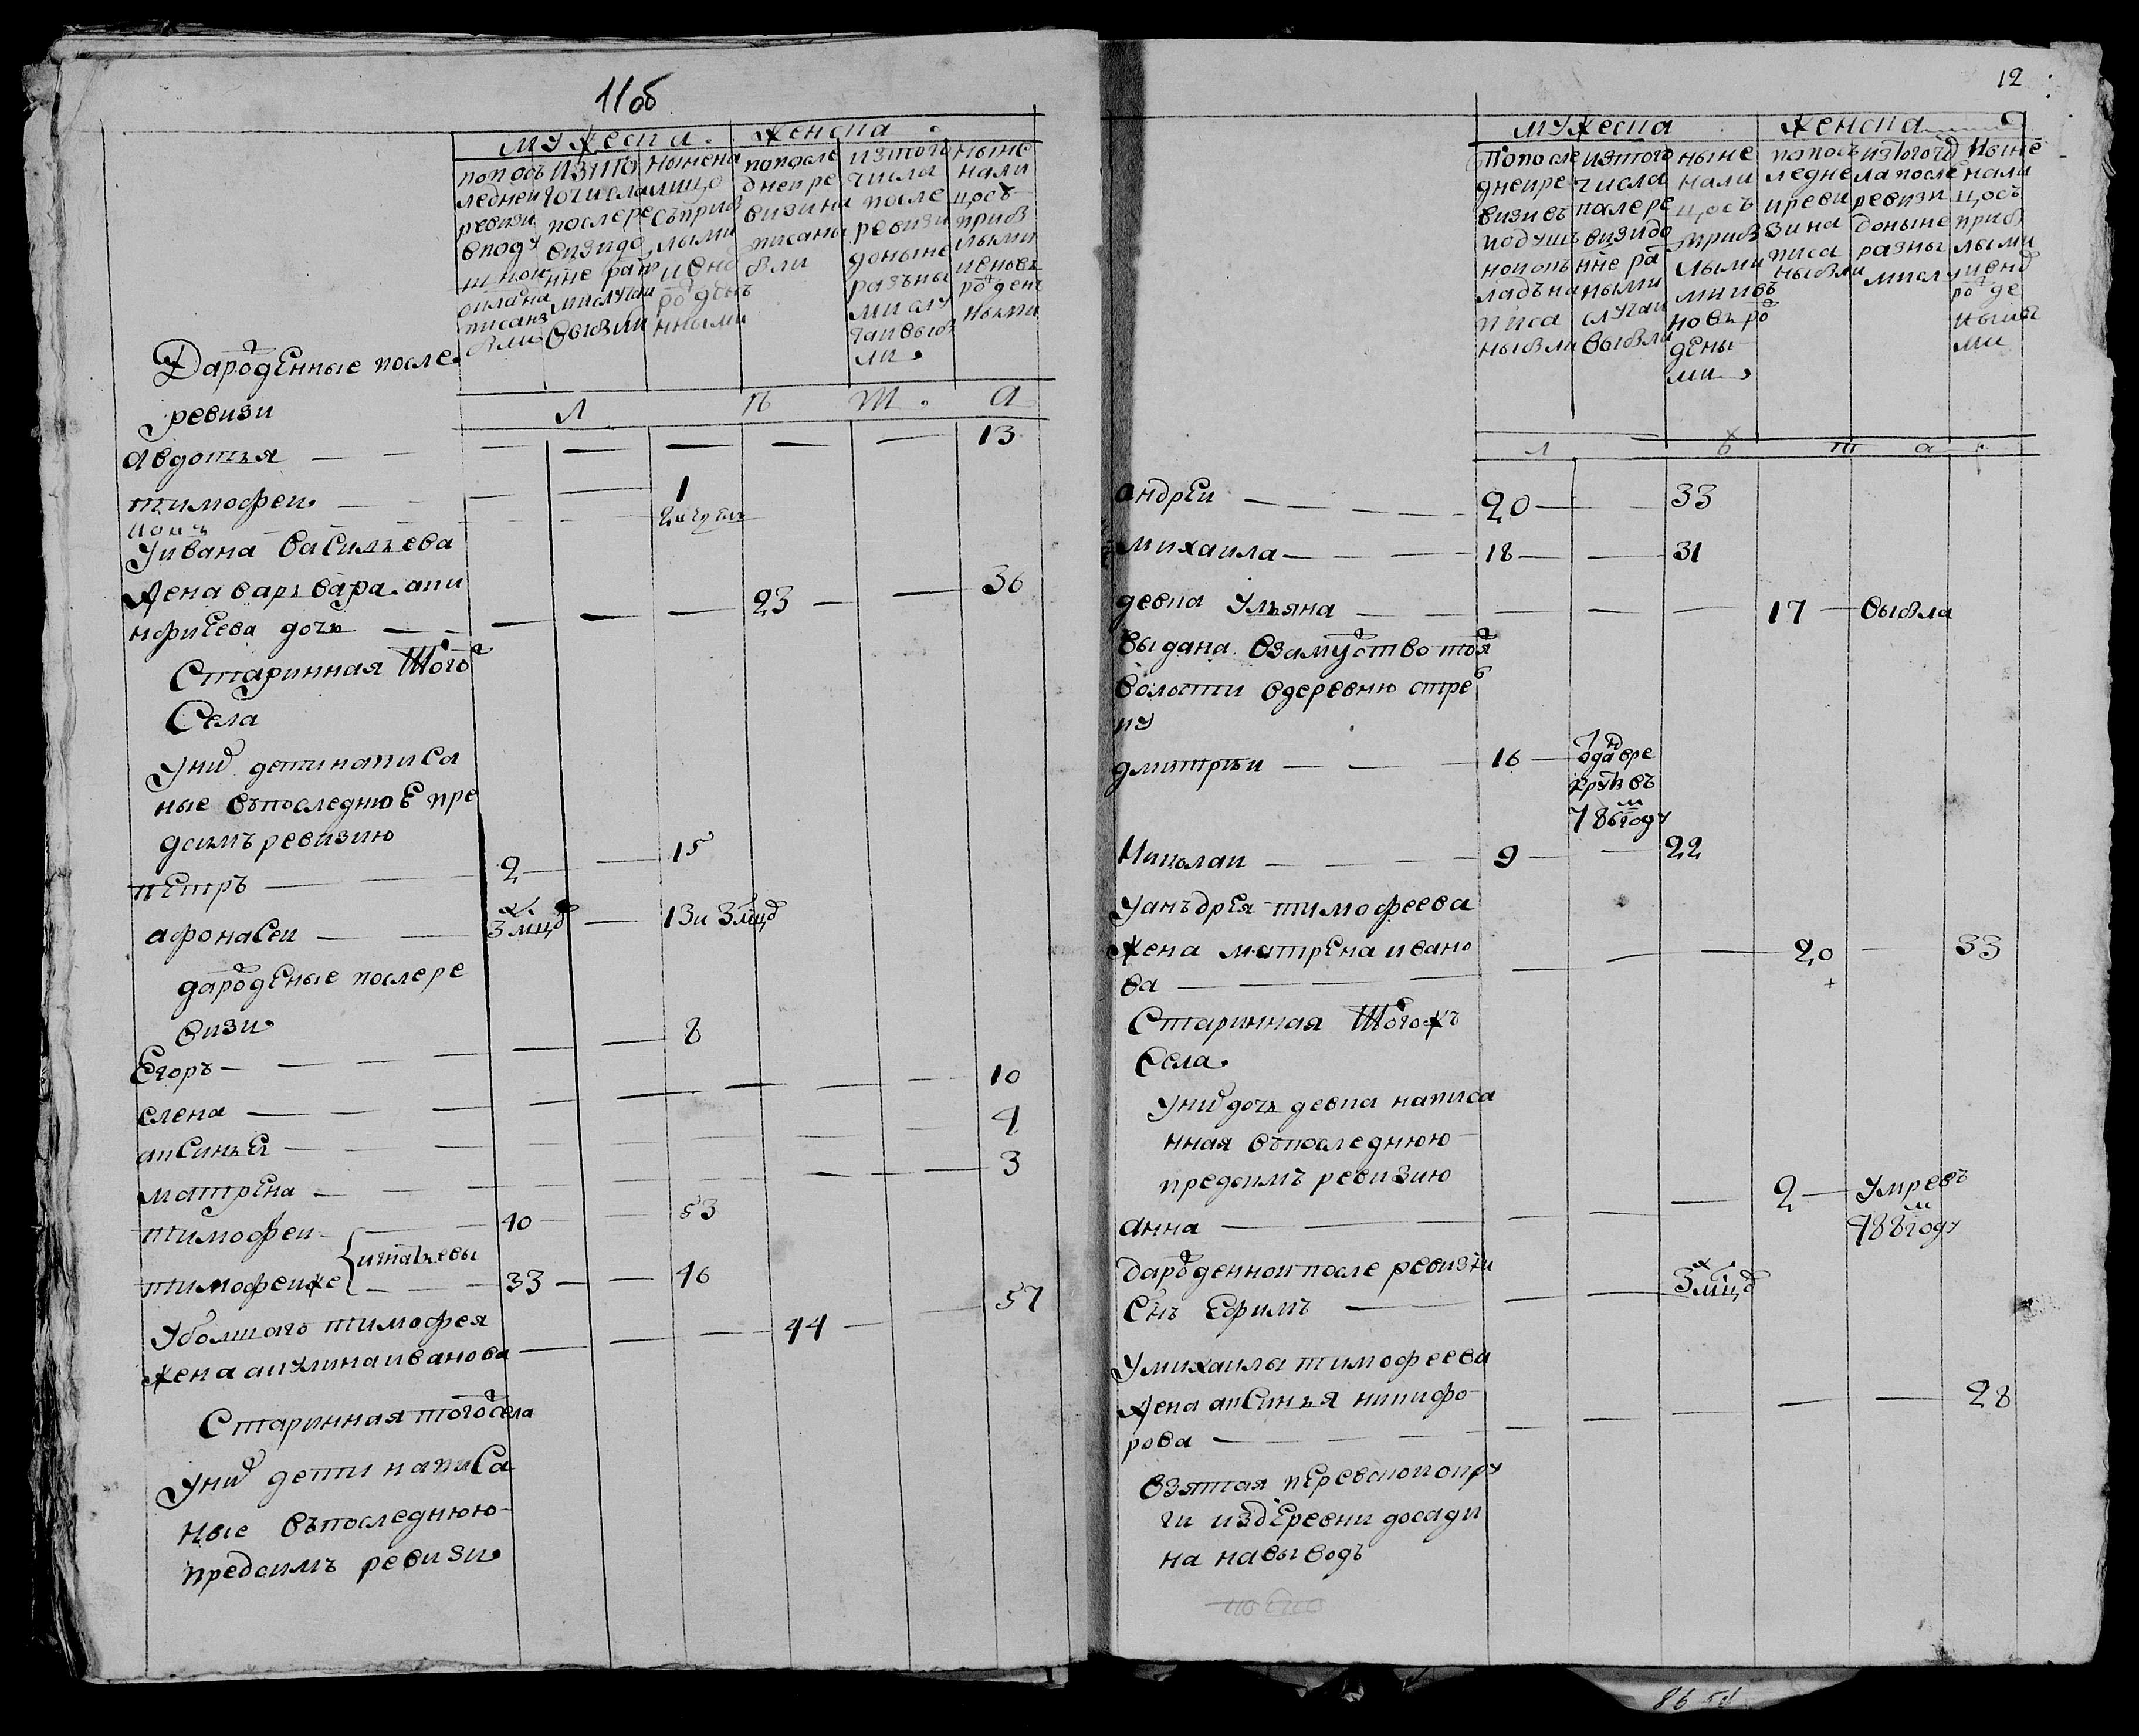 11об
мужеска. женска.
попосъ
ледней
ревизи
вподу
писаны
были
изто
гочисла
послере
визидо
ныне раз
мислучаи
выбыли
ныне на
лицо
съприб
лыми
и вно
рожден
нными
попосле
дней ре
визи на
писаны
были
изтого
числа
после
ревизи
доныне
разны
ми слу
чаи выбы
ли
ныне
нали
цось
приб
лыми
иновь
рожден
ными
Л Ѣ Т. А
Дарожденные после
ревизи
авдотья 13
тимофеи 1
Уивана васильева
жена варьвара. аки
нфиева дочь 23 36
Старинная Тогож
Села
Уних дети написа
ные въпоследнюе пре
дсимъ ревизию
петръ 2 15
афонасеи 3 мцд 13 и 3 мцд
дарожденые послере
визи
Егоръ 8
елена 10
аксинья 4
матрена 3
тимофеи 40 53
игнатьевы
тимофеиже 33 46
Уболшаго тимофея
жена акулина иванова 44 57
Старинная тогож села
Уних дети написа
ные въпоследнюю
предсимъ ревизи
12
мужеска женска
Попосле
дней ре
визи въ
подуш
ной окъ
ладъ на
писа
ны были
изтого
числа
после ре
визи до
ныне ра
зными
случаи
выбыли
ныне
нали
цось
приб
лыми
новъ ро
дены
ми
попосъ
ледне
и реви
зи на
писа
ны были
изтогочи
ла после
ревизи
доныне
разны
ми слу
ныне
нали
цось
приб
лыми
ивно
рожде
ными
л ѣ т а
андреи 20 33
михаила 18 31
девка Ульяна 17 выбыла
выдана взамужство тояж
волости вдеревню стреб
ку
дмитреи 16 отда вре
круты въ
786м году
Николаи 9 22
Уанъдрея тимофеева
жена матрена ивано
ва 20 33
Старинная Тогожъ
Села
Уних дочь девка написа
нная въпоследнюю
предсимъ ревизию
анна 2 Умре въ
788м году
дарожденнои после ревизии
Снъ Ефимъ 3 мцд
Умихаила тимофеева
жена аксинья никифо
рова 28
Взятая перевскои окру
ги издеревни досади
на навыводъ